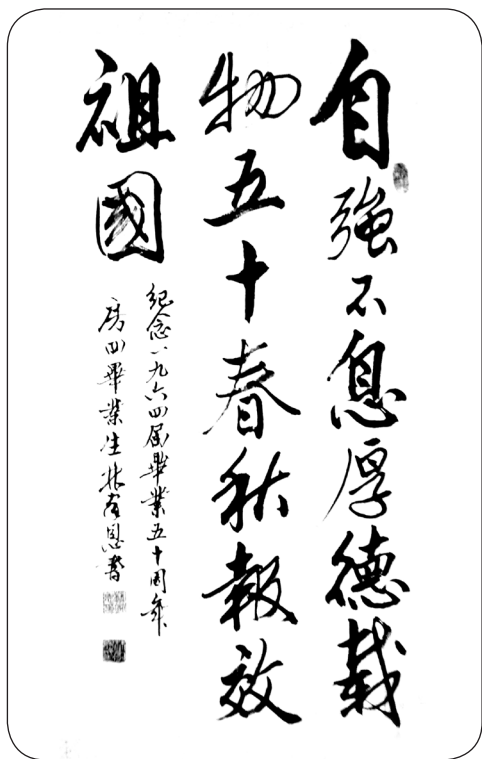 自強不息厚德載
物五十春秋報效
祖國
紀念一九六四届畢業五十周年
房四畢業生林育恩書